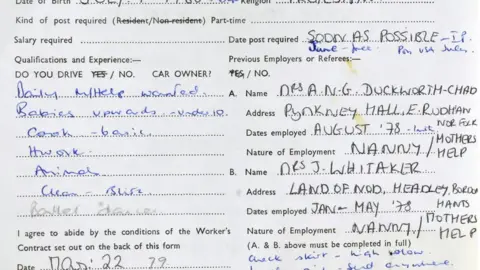 Date of Birth JULY 1
Religion
Kind of post required (Resident/Non-resident) Part-time
Salary required
Date post required SOON AS POSSIBLE - I.P.
Qualifications and Experience:—
Previous Employers or Referees:—
DO YOU DRIVE YES / NO. CAR OWNER? YES / NO.
Daily M/Help wanted
A. Name MRS A.N.G. DUCKWORTH-CHAD
Babies upwards - under 10.
Address PYNKNEY HALL, E. RUDHAM
NORFOLK
Cook - basic
Dates employed AUGUST '78
Hwork
Nature of Employment NANNY / MOTHERS HELP
Animals
B. Name MRS J. WHITAKER
Clean -
Address LAND OF NOD, HEADLEY, BORDON
HANTS
Ballet
Dates employed JAN - MAY '78
I agree to abide by the conditions of the Worker's
Nature of Employment NANNY / MOTHERS HELP
Contract set out on the back of this form
(A. & B. above must be completed in full)
Date MAR: 22 79
check skirt - high
anywhere.